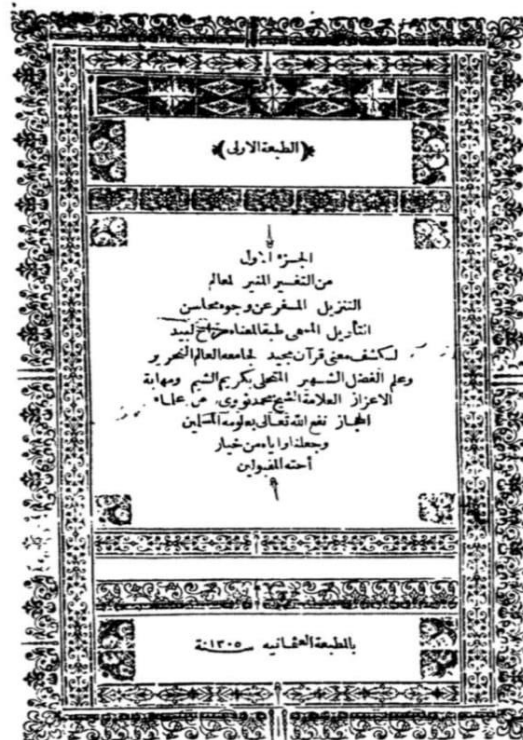 ﴿الطبعة الاولى﴾
الجزء الاول
من التفسير المنير لمعالم
التنزيل المسفر عن وجوه محاسن
التأويل المسمى طبقا لمعناه مراح لبيد
لكشف معنى قرآن مجيد لجامعه العالم النحرير
وعلم الفضل الشهير المتحلى بكريم الشيم ومهابة
الاعزاز العلامة الشيخ محمد نووى من علماء
الحجاز نفع الله تعالى بعلومه المسلمين
وجعلنا واياه من خيار
أحته المقبولين
بالمطبعة العثمانيه سنة ١٣٠٥